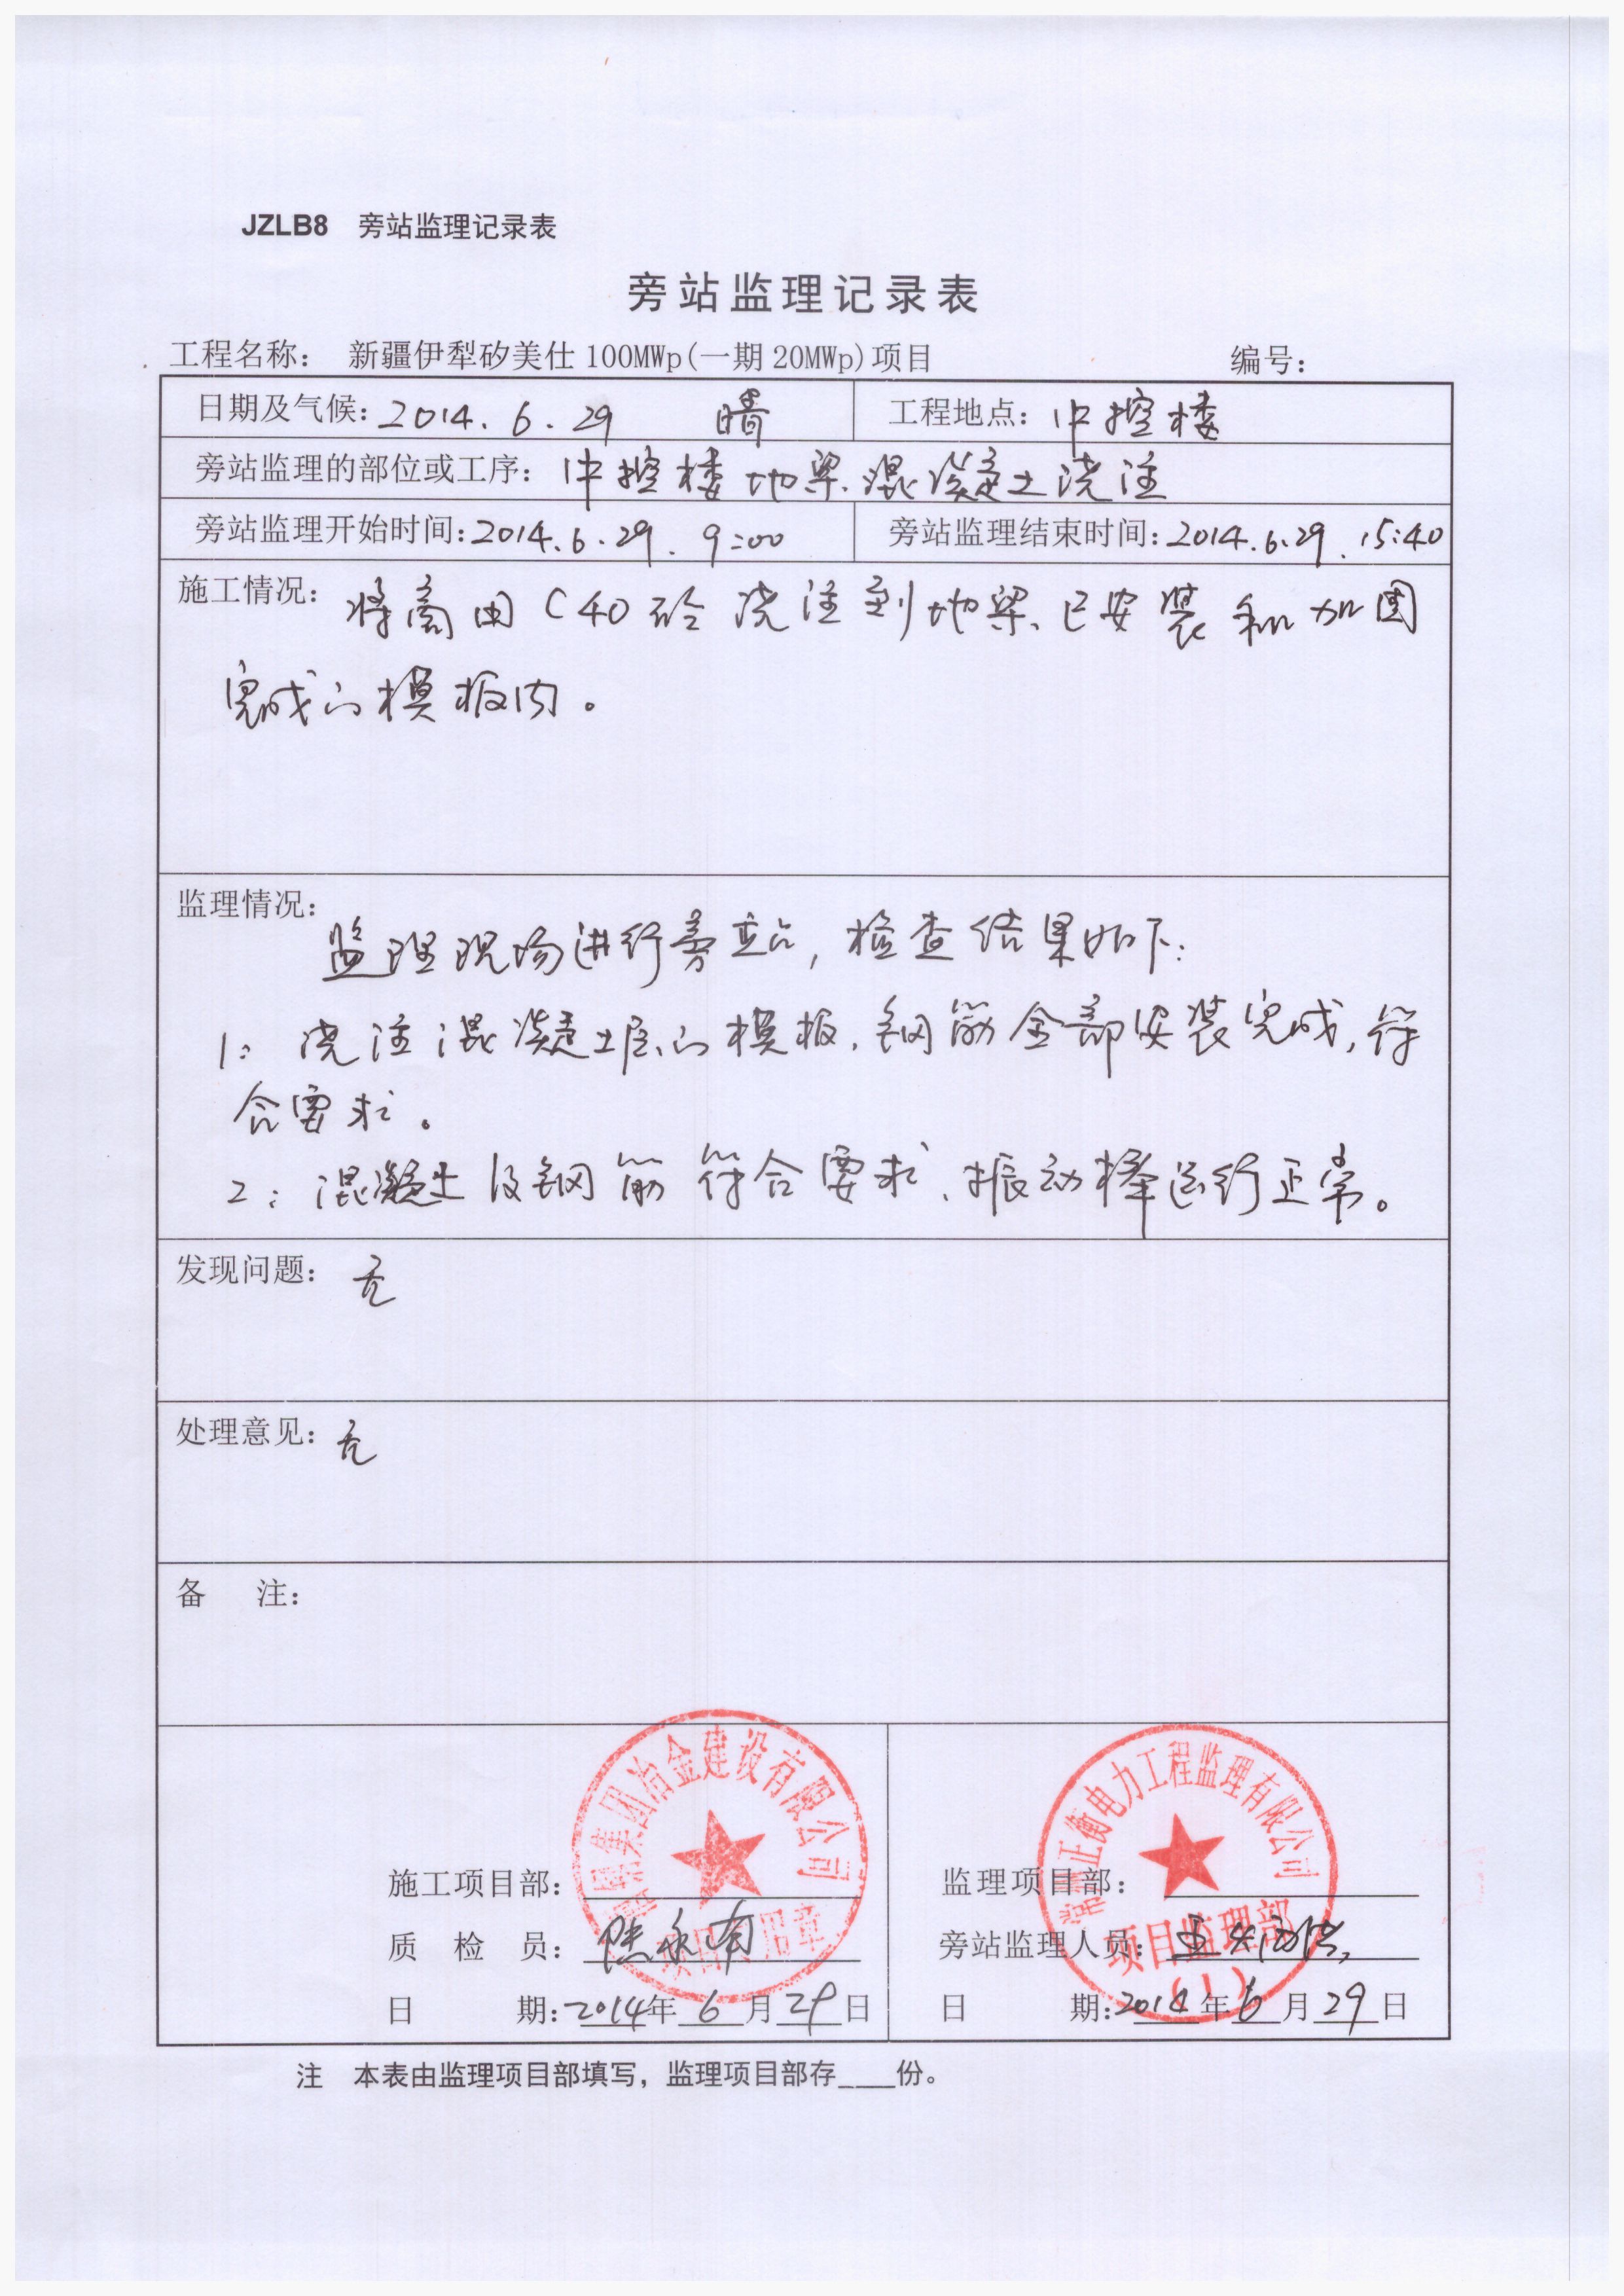 JZLB8 旁站监理记录表
旁站监理记录表
工程名称： 新疆伊犁矽美仕100MWp(一期20MWp)项目 编号：
日期及气候：2014.6.29 晴 工程地点：中控楼
旁站监理的部位或工序：中控楼地梁、混凝土浇注
旁站监理开始时间：2014.6.29.9:00 旁站监理结束时间：2014.6.29.15:40
施工情况：将商用C40砼浇注到地梁、已安装和加固
完成的模板内。
监理情况：
监理现场进行旁站，检查结果如下：
1：浇注混凝土层的模板、钢筋全部安装完成，符
合要求。
2：混凝土及钢筋符合要求、振动棒运行正常。
发现问题：无
处理意见：无
备 注：
集团冶金建设有限公司
常州正衡电力工程监理有限公司
施工项目部： 监理项目部：
项目监理部
(1)
质 检 员： 旁站监理人员：
日 期：2014年6月29日 日 期：2014年6月29日
注 本表由监理项目部填写，监理项目部存____份。